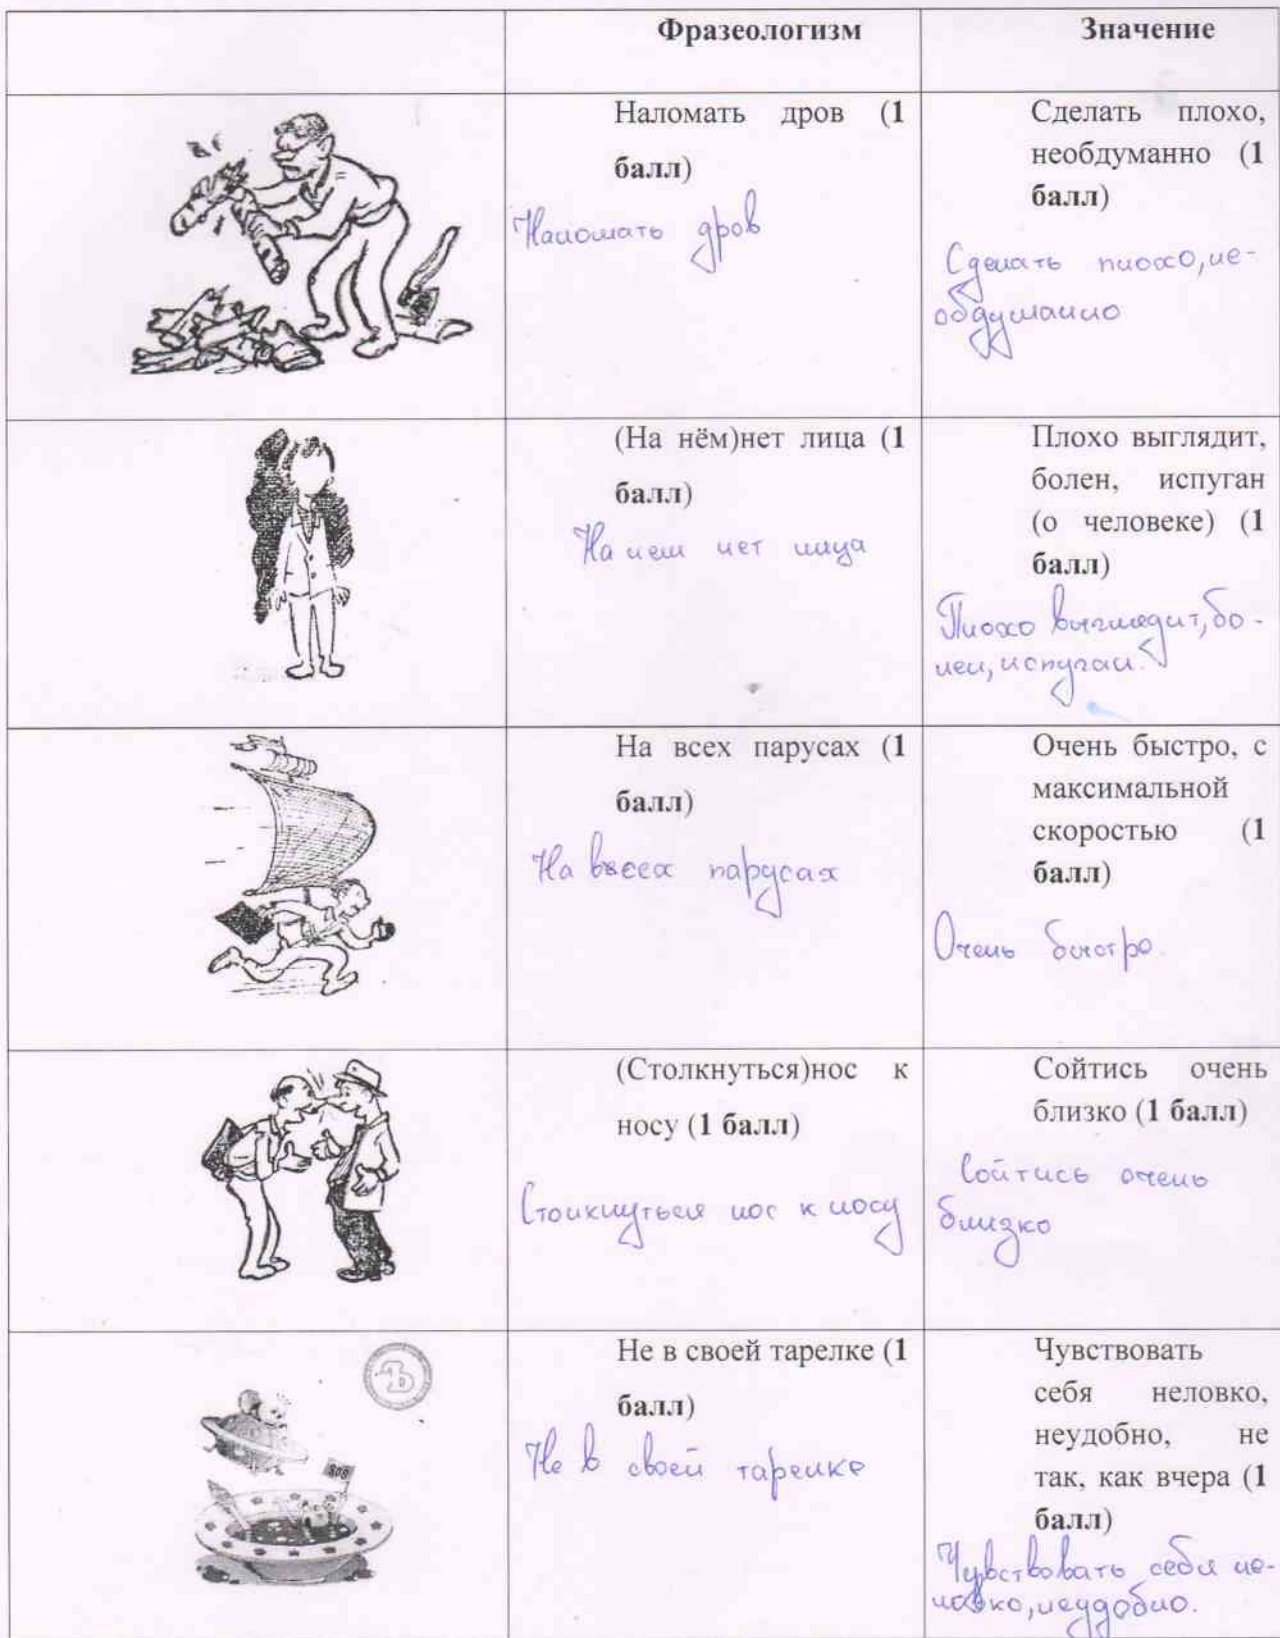 Фразеологизм
Значение
Наломать дров (1
балл)
Наломать дров
Сделать плохо,
необдуманно (1
балл)
Сделать плохо, не-
обдуманно
(На нём)нет лица (1
балл)
На нем нет лица
Плохо выглядит,
болен, испуган
(о человеке) (1
балл)
Плохо выглядит, бо-
лен, испуган.
На всех парусах (1
балл)
На всех парусах
Очень быстро, с
максимальной
скоростью (1
балл)
Очень быстро.
(Столкнуться)нос к
носу (1 балл)
Столкнуться нос к носу
Сойтись очень
близко (1 балл)
Сойтись очень
близко
Ъ
SOS
Не в своей тарелке (1
балл)
Не в своей тарелке
Чувствовать
себя неловко,
неудобно, не
так, как вчера (1
балл)
Чувствовать себя не-
ловко, неудобно.